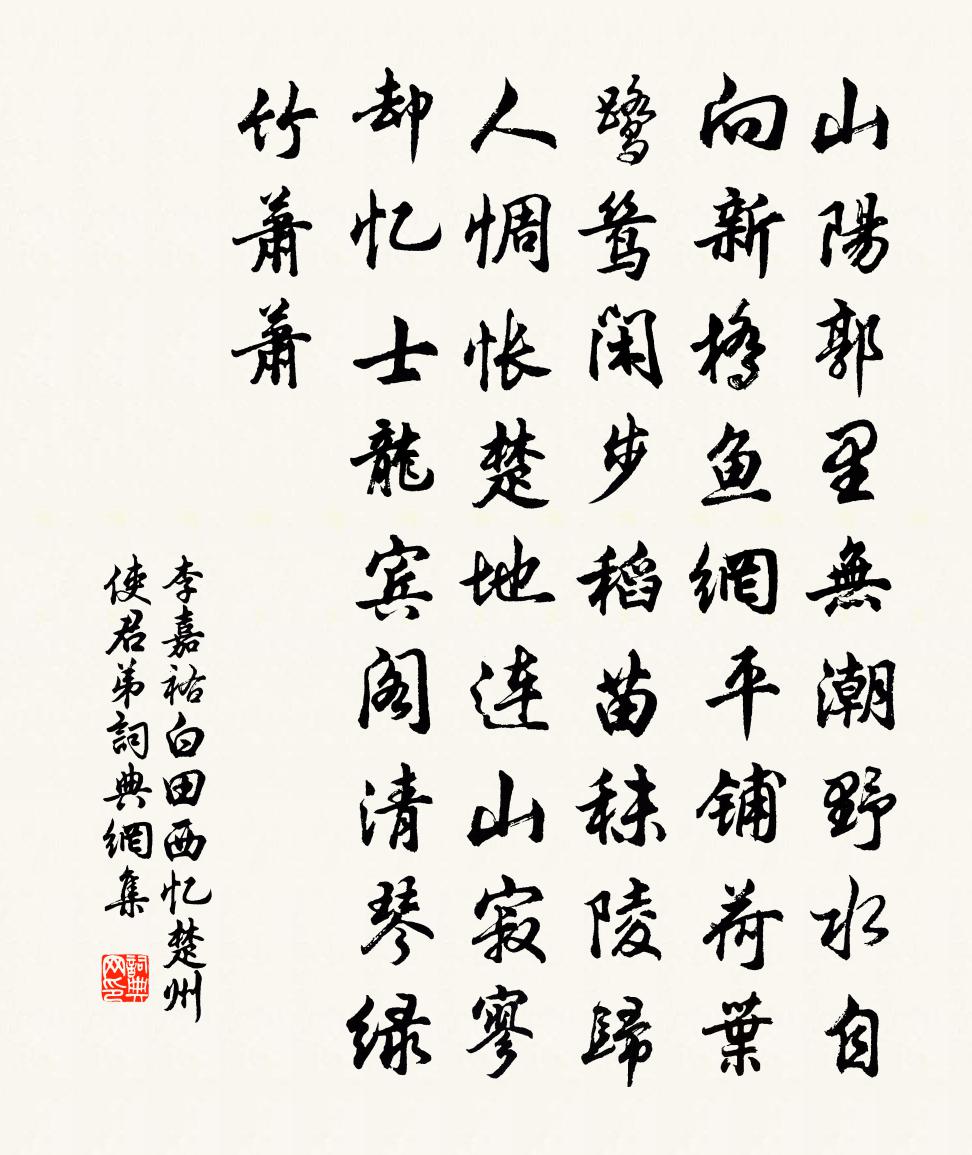 山陽郭里無潮野水自
向新橋鱼網平铺荷葉
鹭鸶闲步稻苗秣陵歸
人惆怅楚地连山寂寥
却忆士龍宾阁清琴绿
竹蕭蕭
李嘉裕白田西忆楚州
使君弟詞典網集
詞典网印